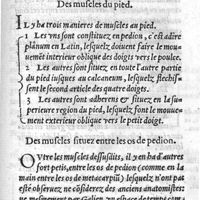 Des muscles du pied.
IL y ha trois manieres de muscles au pied.
1 Les vns sont constituez en pedion, c'est adire
planum en Latin, lesquelz doiuent faire le mouue-
ment interieur oblique des doigts vers le poulce.
2 Les autres sont situez en toute l'autre partie
du pied iusques au calcaneum, lesquelz flechis-
sent le second article des quatre doigts.
3 Les autres sont adherens & situez en la su-
perieure region du pied, lesquelz font le mouue-
ment exterieur oblique vers le petit doigt.
Des muscles situez entre les os de pedion.
OVtre les muscles dessusdits, il y en ha d'autres
fort petis, entre les os de pedion (comme en la
main entre les os de metacarpii) lesquelz n'ont pas
esté obseruez ne cōsiderez des anciens anatomistes: